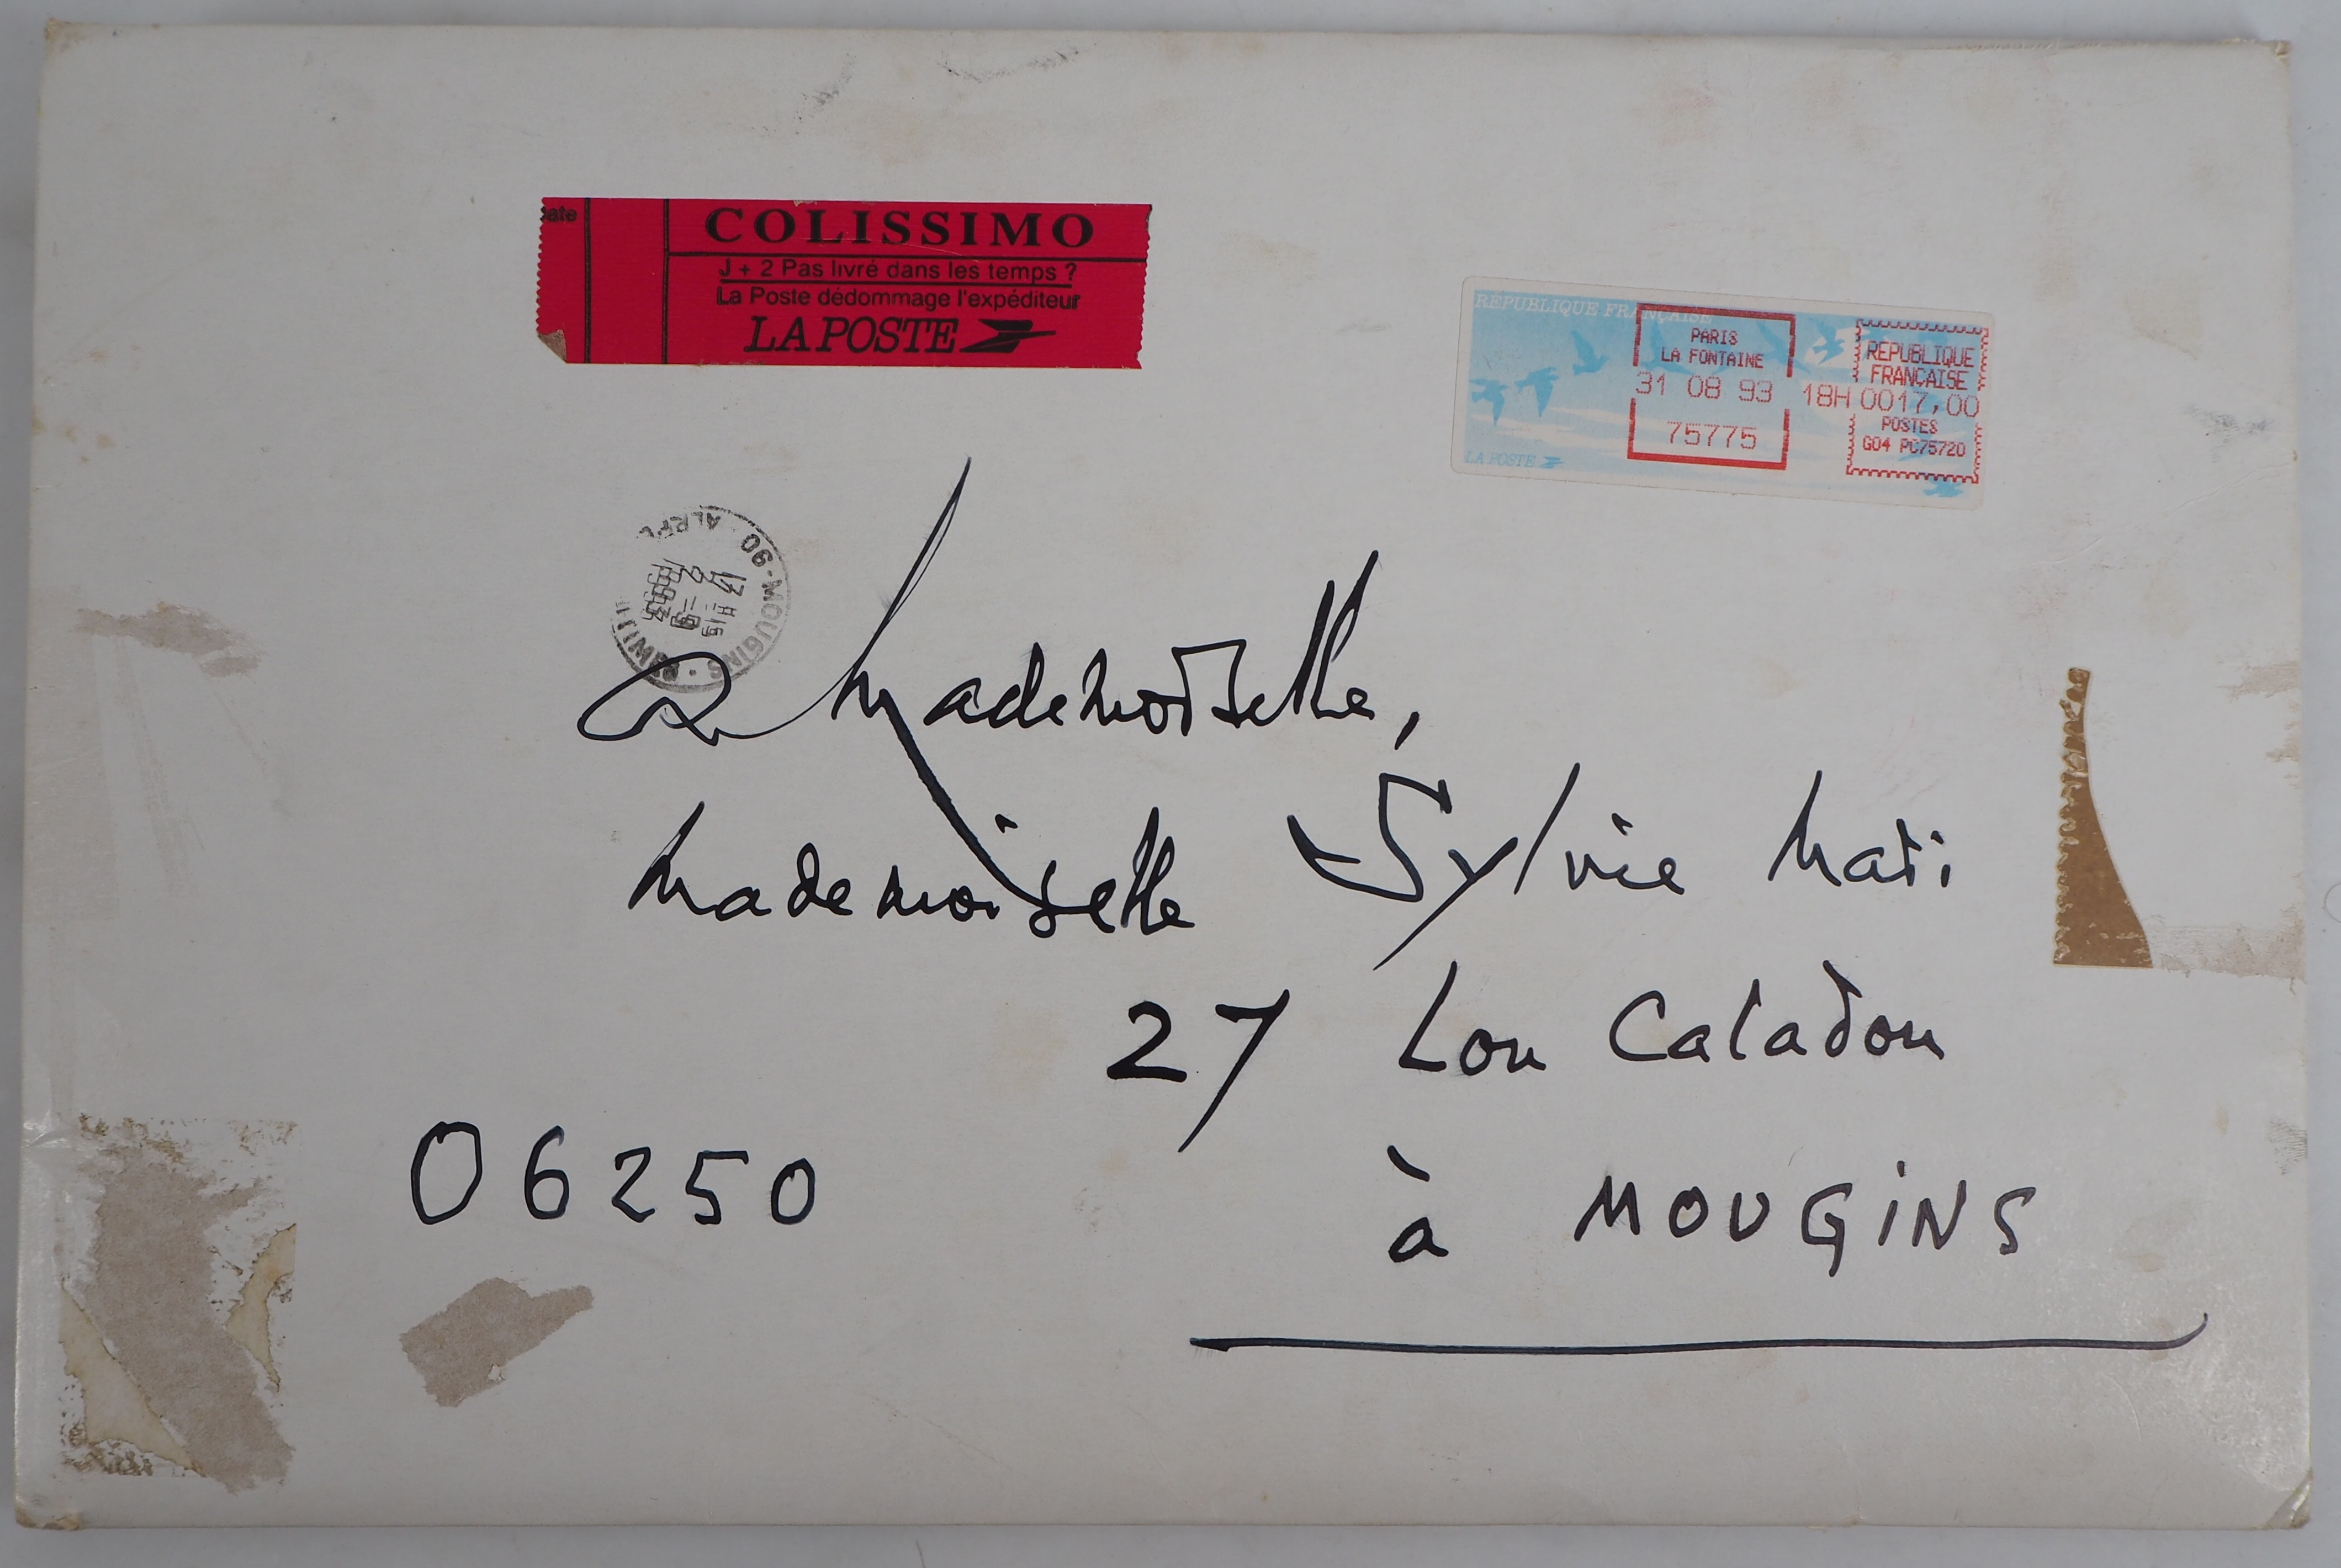 ate
COLISSIMO
J + 2 Pas livré dans les temps ?
La Poste dédommage l'expéditeur
LA POSTE
RÉPUBLIQUE FRANÇAISE
PARIS
LA FONTAINE
31 08 93
75775
REPUBLIQUE
FRANÇAISE
18H 0017,00
POSTES
G04 PC75720
LA POSTE
06-MOUGINS
à Mademoiselle,
Mademoiselle Sylvie Mati
27 Lou Caladou
06250 à MOUGiNS